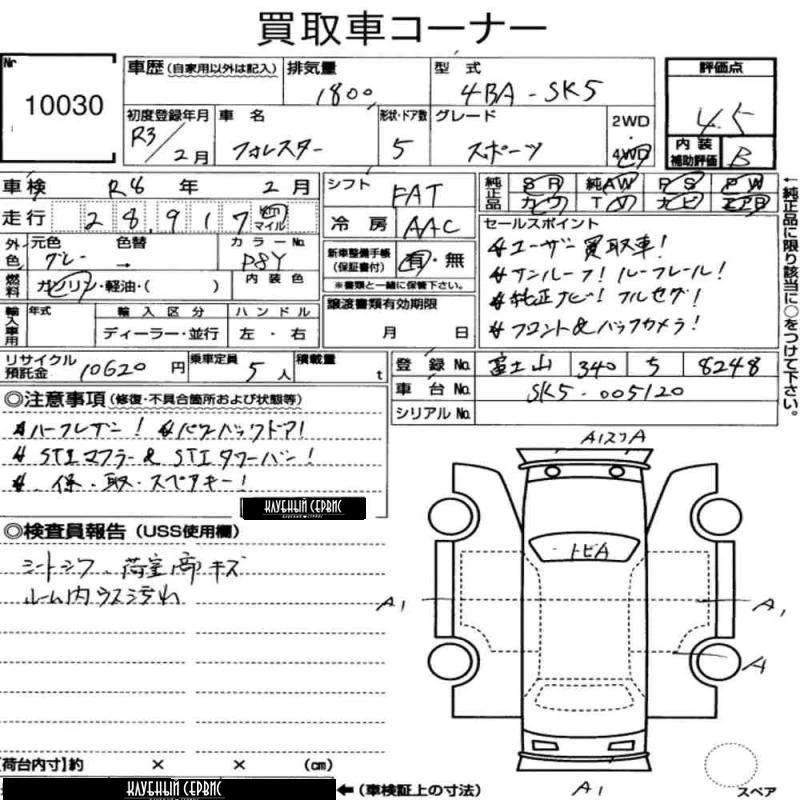 買取車コーナー
Nr
10030
車歴 (自家用以外は記入) 排気量 型式 評価点
1800 4BA-SK5 4.5
初度登録年月 車名 形状・ドア数 グレード 2WD
R3/2月 フォレスター 5 スポーツ 4WD
内装補助評価 B
車検 R8年 2月 シフト FAT
走行 28,917 km マイル 冷房 AAC
純正品 SR 純AW PS PW
カワ TV ナビ エアB
外色 元色 色替 カラーNo.
グレー → P8Y
新車整備手帳(保証書付) 有・無
※書類と一緒に保管下さい。
燃料 ガソリン・軽油・( ) 内装色
セールスポイント
ユーザー買取車!
サンルーフ!ルーフレール!
純正ナビ!フルセグ!
フロント&バックカメラ!
←純正品に限り該当に○をつけて下さい。
輸入車用 年式 輸入区分 ハンドル
ディーラー・並行 左・右
譲渡書類有効期限
月 日
リサイクル預託金 10620円 乗車定員 5人 積載量 t
登録No. 富士山 340 ち 8248
車台No. SK5-005120
シリアルNo.
◎注意事項 (修復・不具合箇所および状態等)
ハーフレザー! パワーバックドア!
STIマフラー & STIタワーバー!
保・取・スペアキー!
КЛУБНЫЙ СЕРВИС
◎検査員報告 (USS使用欄)
シートシワ、荷室部キズ
ルーム内ウス汚れ
トビA
A1
A1
A
A1
スペア
【荷台内寸】約 × × (cm)
КЛУБНЫЙ СЕРВИС
←(車検証上の寸法)